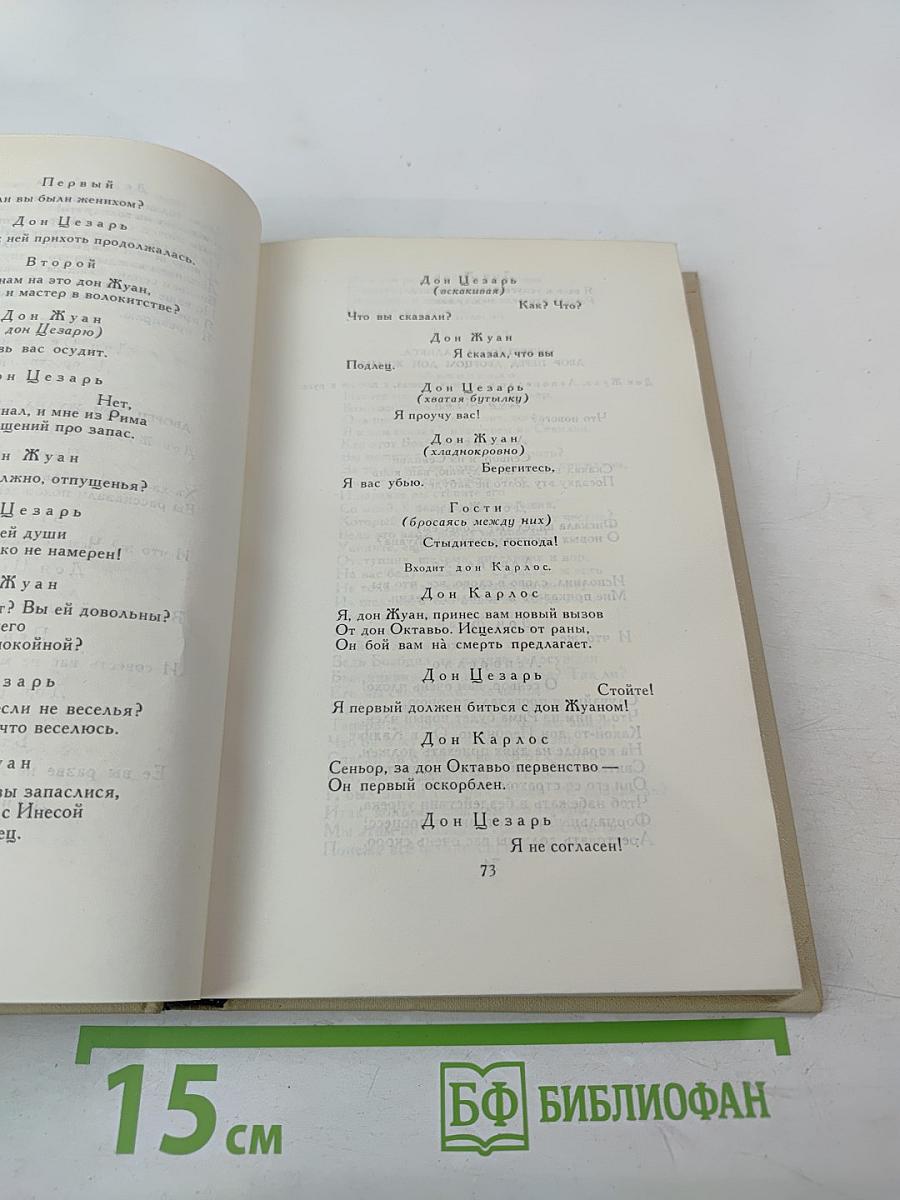 Первый
ли вы были женихом?
Дон Цезарь
ней прихоть продолжалась.
Второй
нам на это дон Жуан,
и мастер в волокитстве?
Дон Жуан
дон Цезарю)
вь вас осудит.
он Цезарь
Нет,
нал, и мне из Рима
щений про запас.
н Жуан
лжно, отпущенья?
Цезарь
ей души
ко не намерен!
Жуан
т? Вы ей довольны?
его
покойной?
зарь
если не веселья?
что веселюсь.
уан
вы запаслися,
с Инесой
ец.
Дон Цезарь
(вскакивая)
Как? Что?
Что вы сказали?
Дон Жуан
Я сказал, что вы
Подлец.
Дон Цезарь
(хватая бутылку)
Я проучу вас!
Дон Жуан
(хладнокровно)
Берегитесь,
Я вас убью.
Гости
(бросаясь между них)
Стыдитесь, господа!
Входит дон Карлос.
Дон Карлос
Я, дон Жуан, принес вам новый вызов
От дон Октавьо. Исцелясь от раны,
Он бой вам на̀ смерть предлагает.
Дон Цезарь
Стойте!
Я первый должен биться с дон Жуаном!
Дон Карлос
Сеньор, за дон Октавьо первенство —
Он первый оскорблен.
Дон Цезарь
Я не согласен!
73
15 см
БФ БИБЛИОФАН